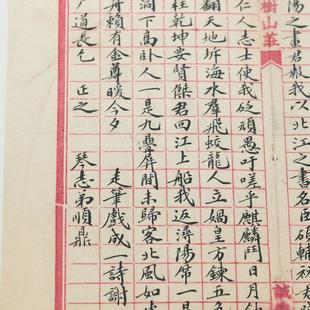 陽之畫君報我以北江之書名臣碩輔
樹山莊
誠
仁人志士使我砭頑愚吁嗟乎麒麟鬥日月
翻天地坼海水羣飛蛟龍人立媧皇方鍊五
柱乾坤要賢傑君回江上船我返潯陽席一
洞下高卧人一是九疊屏間未歸客北風如
舟賴有金尊暖今夕 走筆戲成一詩謝
道長乞 正之 琴志弟順鼎